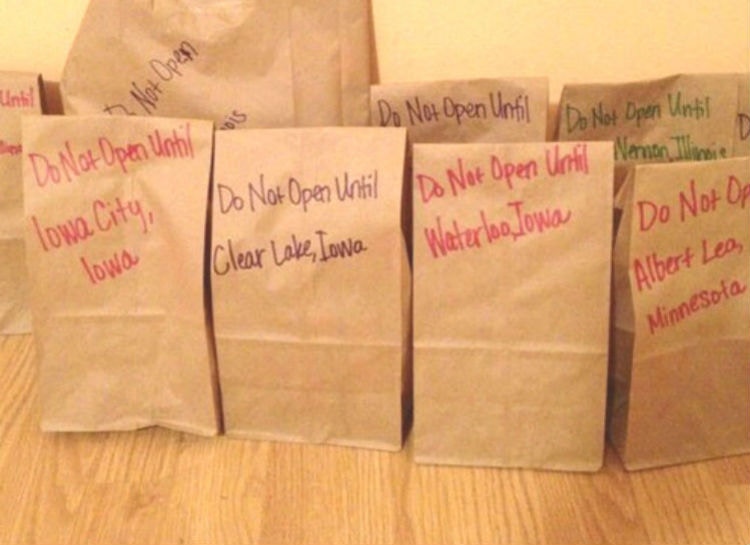 Until
Do Not Open
Do Not Open Until
Do Not Open Until
Vernon, Illinois
Do Not Open Until
Iowa City,
Iowa
Do Not Open Until
Clear Lake, Iowa
Do Not Open Until
Waterloo, Iowa
Do Not Op
Albert Lea,
Minnesota